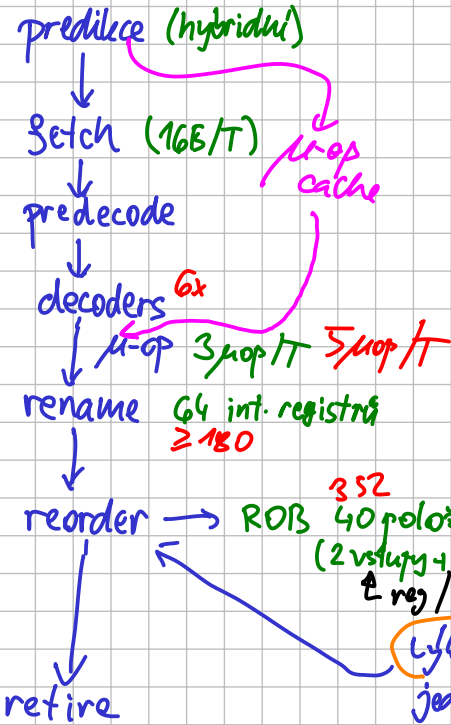 predikce (hybridní)
fetch (16B/T)
μ-op
cache
predecode
decoders 6x
μ-op 3μop/T 5μop/T
rename 64 int. registrů
≥180
352
reorder → ROB 40 polož
(2 vstupy +
reg /
retire